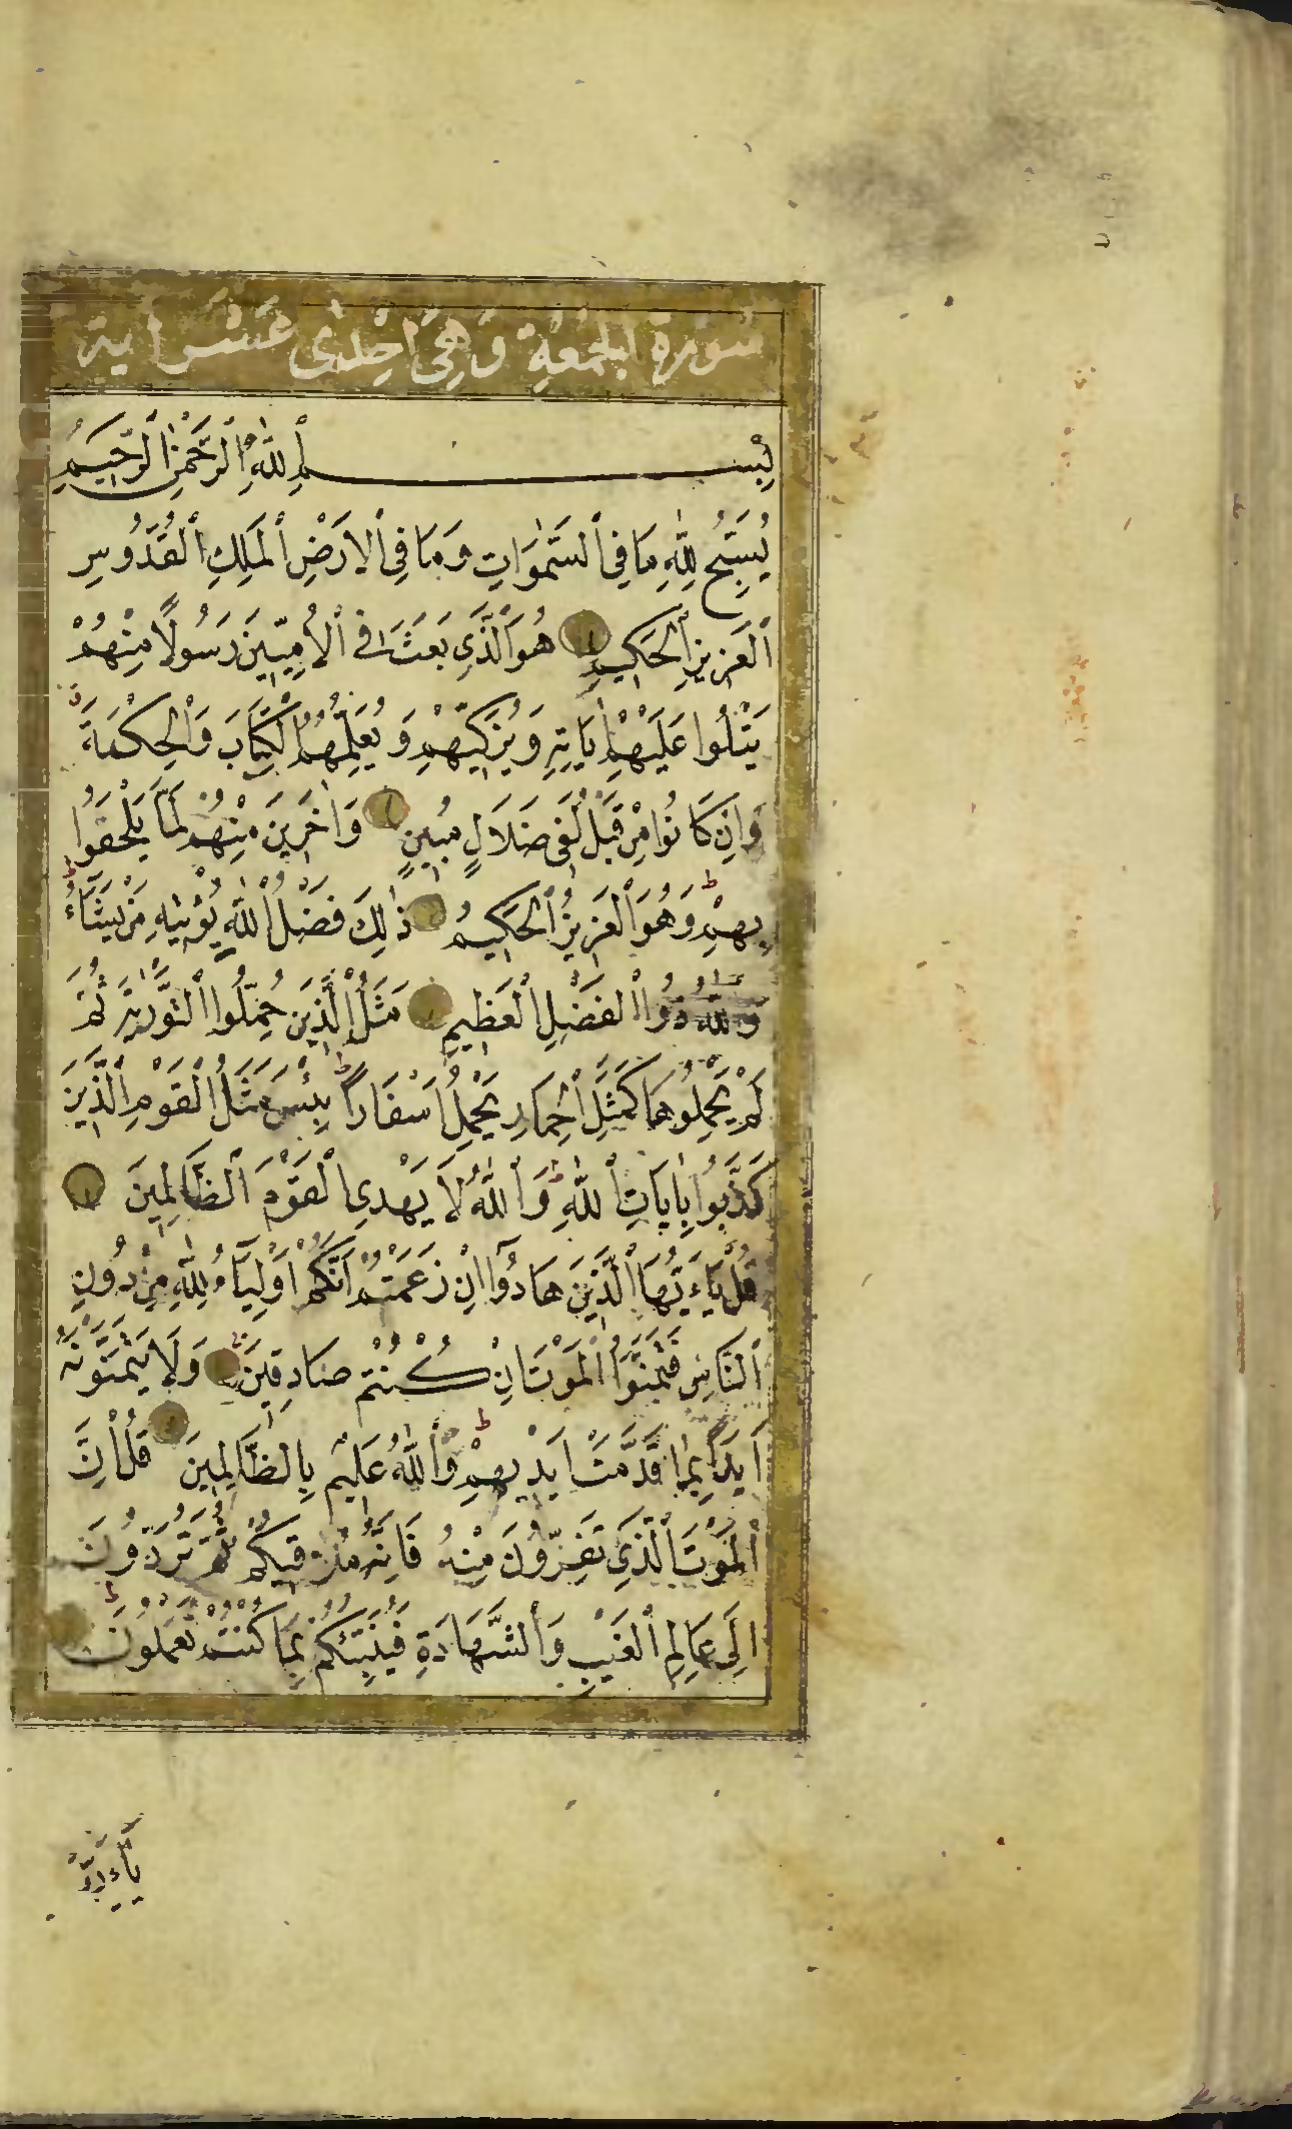 سُورَةُ الْجُمُعَةِ وَهِيَ اِحْدٰى عَشَرَ اٰيَة
بِسْمِ اللّٰهِ الرَّحْمٰنِ الرَّحِيمِ
يُسَبِّحُ لِلّٰهِ مَا فِي السَّمٰوَاتِ وَمَا فِي الْاَرْضِ الْمَلِكِ الْقُدُّوسِ
الْعَزِيزِ الْحَكِيمِ هُوَ الَّذِي بَعَثَ فِي الْاُمِّيِّينَ رَسُولًا مِنْهُمْ
يَتْلُوا عَلَيْهِمْ اٰيَاتِهِ وَيُزَكِّيهِمْ وَيُعَلِّمُهُمُ الْكِتَابَ وَالْحِكْمَةَ
وَاِنْ كَانُوا مِنْ قَبْلُ لَفِي ضَلَالٍ مُبِينٍ وَاٰخَرِينَ مِنْهُمْ لَمَّا يَلْحَقُوا
بِهِمْ وَهُوَ الْعَزِيزُ الْحَكِيمُ ذٰلِكَ فَضْلُ اللّٰهِ يُؤْتِيهِ مَنْ يَشَاءُ
وَاللّٰهُ ذُوا الْفَضْلِ الْعَظِيمِ مَثَلُ الَّذِينَ حُمِّلُوا التَّوْرٰيةَ ثُمَّ
لَمْ يَحْمِلُوهَا كَمَثَلِ الْحِمَارِ يَحْمِلُ اَسْفَارًا بِئْسَ مَثَلُ الْقَوْمِ الَّذِينَ
كَذَّبُوا بِاٰيَاتِ اللّٰهِ وَاللّٰهُ لَا يَهْدِي الْقَوْمَ الظَّالِمِينَ
قُلْ يَاءَيُّهَا الَّذِينَ هَادُوٓا اِنْ زَعَمْتُمْ اَنَّكُمْ اَوْلِيَاءُ لِلّٰهِ مِنْ دُونِ
النَّاسِ فَتَمَنَّوُا الْمَوْتَ اِنْ كُنْتُمْ صَادِقِينَ وَلَا يَتَمَنَّوْنَهُ
اَبَدًا بِمَا قَدَّمَتْ اَيْدِيهِمْ وَاللّٰهُ عَلِيمٌ بِالظَّالِمِينَ قُلْ اِنَّ
الْمَوْتَ الَّذِي تَفِرُّونَ مِنْهُ فَاِنَّهُ مُلَاقِيكُمْ ثُمَّ تُرَدُّونَ
اِلَى عَالِمِ الْغَيْبِ وَالشَّهَادَةِ فَيُنَبِّئُكُمْ بِمَا كُنْتُمْ تَعْمَلُونَ